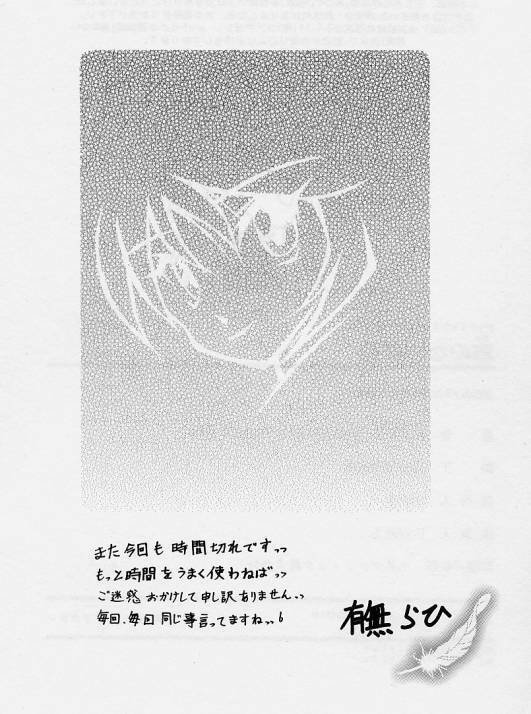 また今回も時間切れですっっ
もっと時間をうまく使わねばっっ
ご迷惑おかけして申し訳ありませんっっ
毎回、毎回同じ事言ってますねっっ6
有無らひ